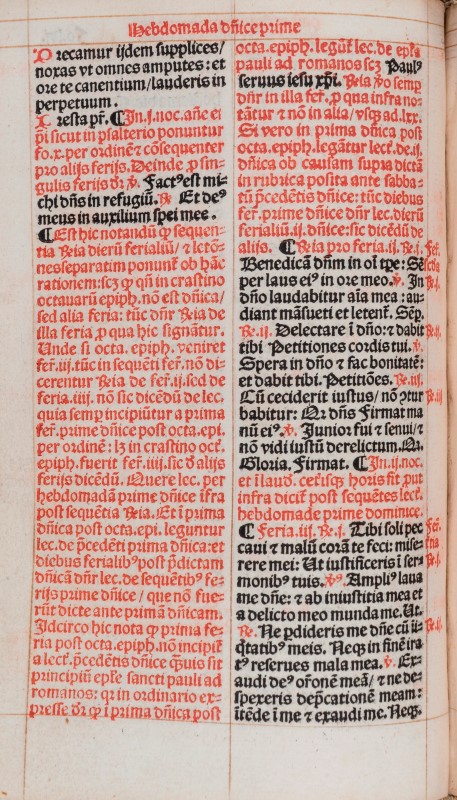 Hebdomada dñice prime
Precamur ijdem supplices/
noxas vt omnes amputes: et
ore te canentium/lauderis in
perpetuum.
Cresta pr̄. ¶ In .j. noc. añe ei
pꝰi sicut in psalterio ponuntur
fo. x. per ordinē & cōsequenter
pro alijs ferijs. Deinde ꝑ sin-
gulis ferijs dr̄ ℣. Factꝰ est mi-
chi dñs in refugiū. ℟ Et deꝰ
meus in auxilium spei mee.
¶ Est hic notandū ꝙ sequen-
tia ℟ia dierū ferialiū/ & lectō-
nes separatim ponunt᷑ ob hāc
rationem: scꝫ ꝙ qñ in crastino
octauarū epiph. nō est dñica/
sed alia feria: tūc dñr ℟ia de
illa feria ꝓ qua hic signāt᷑ur.
Unde si octa. epiph. veniret
fer̄. iij. tūc in sequēti fer̄. nō di-
cerentur ℟ia de fer̄. ij. sed de
feria. iiij. nō sic dicēdū de lec.
quia semꝑ incipiūtur a prima
fer̄. prime dñice post octa. epi.
per ordinē: lꝫ in crastino oct᷑.
epiph. fuerit fer̄. iiij. sic đ alijs
ferijs dicēdū. Quere lec. per
hebdomadā prime dñice īfra
post sequētia ℟ia. Et ī prima
dñica post octa. epi. leguntur
lec. de p̄cedēti prima dñica: et
diebus ferialibꝰ post p̄dictam
dñicā dñr lec. de sequētibꝰ fe-
rijs prime dñice/ que nō fue-
rūt dicte ante primā dñicam.
Idcirco hic nota ꝙ prima fe-
ria post octa. epiph. nō incipit᷑
a lect᷑. p̄cedētis dñice qᷓuis sit
principiū ep̄le sancti pauli ad
romanos: qꝛ in ordinario ex-
presse dr̄ ꝙ ī prima dñica post
octa. epiph. legūt᷑ lec. de ep̄la
pauli ad romanos scꝫ Paulꝰ
seruus iesu xp̄i. ℟ia ꝟo semꝑ
dñr in illa fer̄. ꝓ qua infra no-
tātur & nō in alia/ vsqꝫ ad. lxx.
Si vero in prima dñica post
octa. epiph. legātur lect᷑. de. ij.
dñica ob causam supra dictā
in rubrica posita ante sabba-
tū p̄cedētis dñice: tūc diebus
fer̄. prime dñice dñr lec. dierū
ferialiū. ij. dñice: sic dicēdū de
alijs. ¶ ℟ia pro feria. ij. ℟. j.
Benedicā dñm in oī tp̄e: Sē
per laus eiꝰ in ore meo. ℣. In
dño laudabitur aīa mea: au-
diant māsueti et letent᷑. Sēꝑ.
℟. ij. Delectare ī dño: & dabit
tibi Petitiones cordis tui. ℣.
Spera in dño & fac bonitatē:
et dabit tibi. Petitiōes. ℟. iij.
Cū ceciderit iustus/ nō ꝯtur
babitur: Qꝛ dñs Firmat ma
nū eiꝰ. ℣. Junior fui & senui/ &
nō vidi iustū derelictum. Qꝛ.
Gloria. Firmat. ¶ In. ij. noc.
et ī laud. cet᷑isqꝫ horis fit ꝓut
infra dicit᷑ post sequētes lect᷑.
hebdomade prime dominice.
¶ Feria. iij. ℟. j. Tibi soli pec
caui & malū corā te feci: mise-
rere mei: Ut iustificeris ī ser-
monibꝰ tuis. ℣ꝰ. Ampliꝰ laua
me dñe: & ab iniustitia mea et
a delicto meo munda me. Ut.
℟. Ne ꝑdideris me dñe cū ī-
ꝗtatibꝰ meis. Neqꝫ in finē ira
tꝰ reserues mala mea. ℣. Ex-
audi deꝰ or̄onē meā/ & ne de-
spexeris dep̄cationē meam:
ītēde ī me & exaudi me. Neqꝫ.
Fer̄.
scḋa
℟. j.
℟. ij.
℟. iij
Fer̄.
℟. j.
℟. ij.